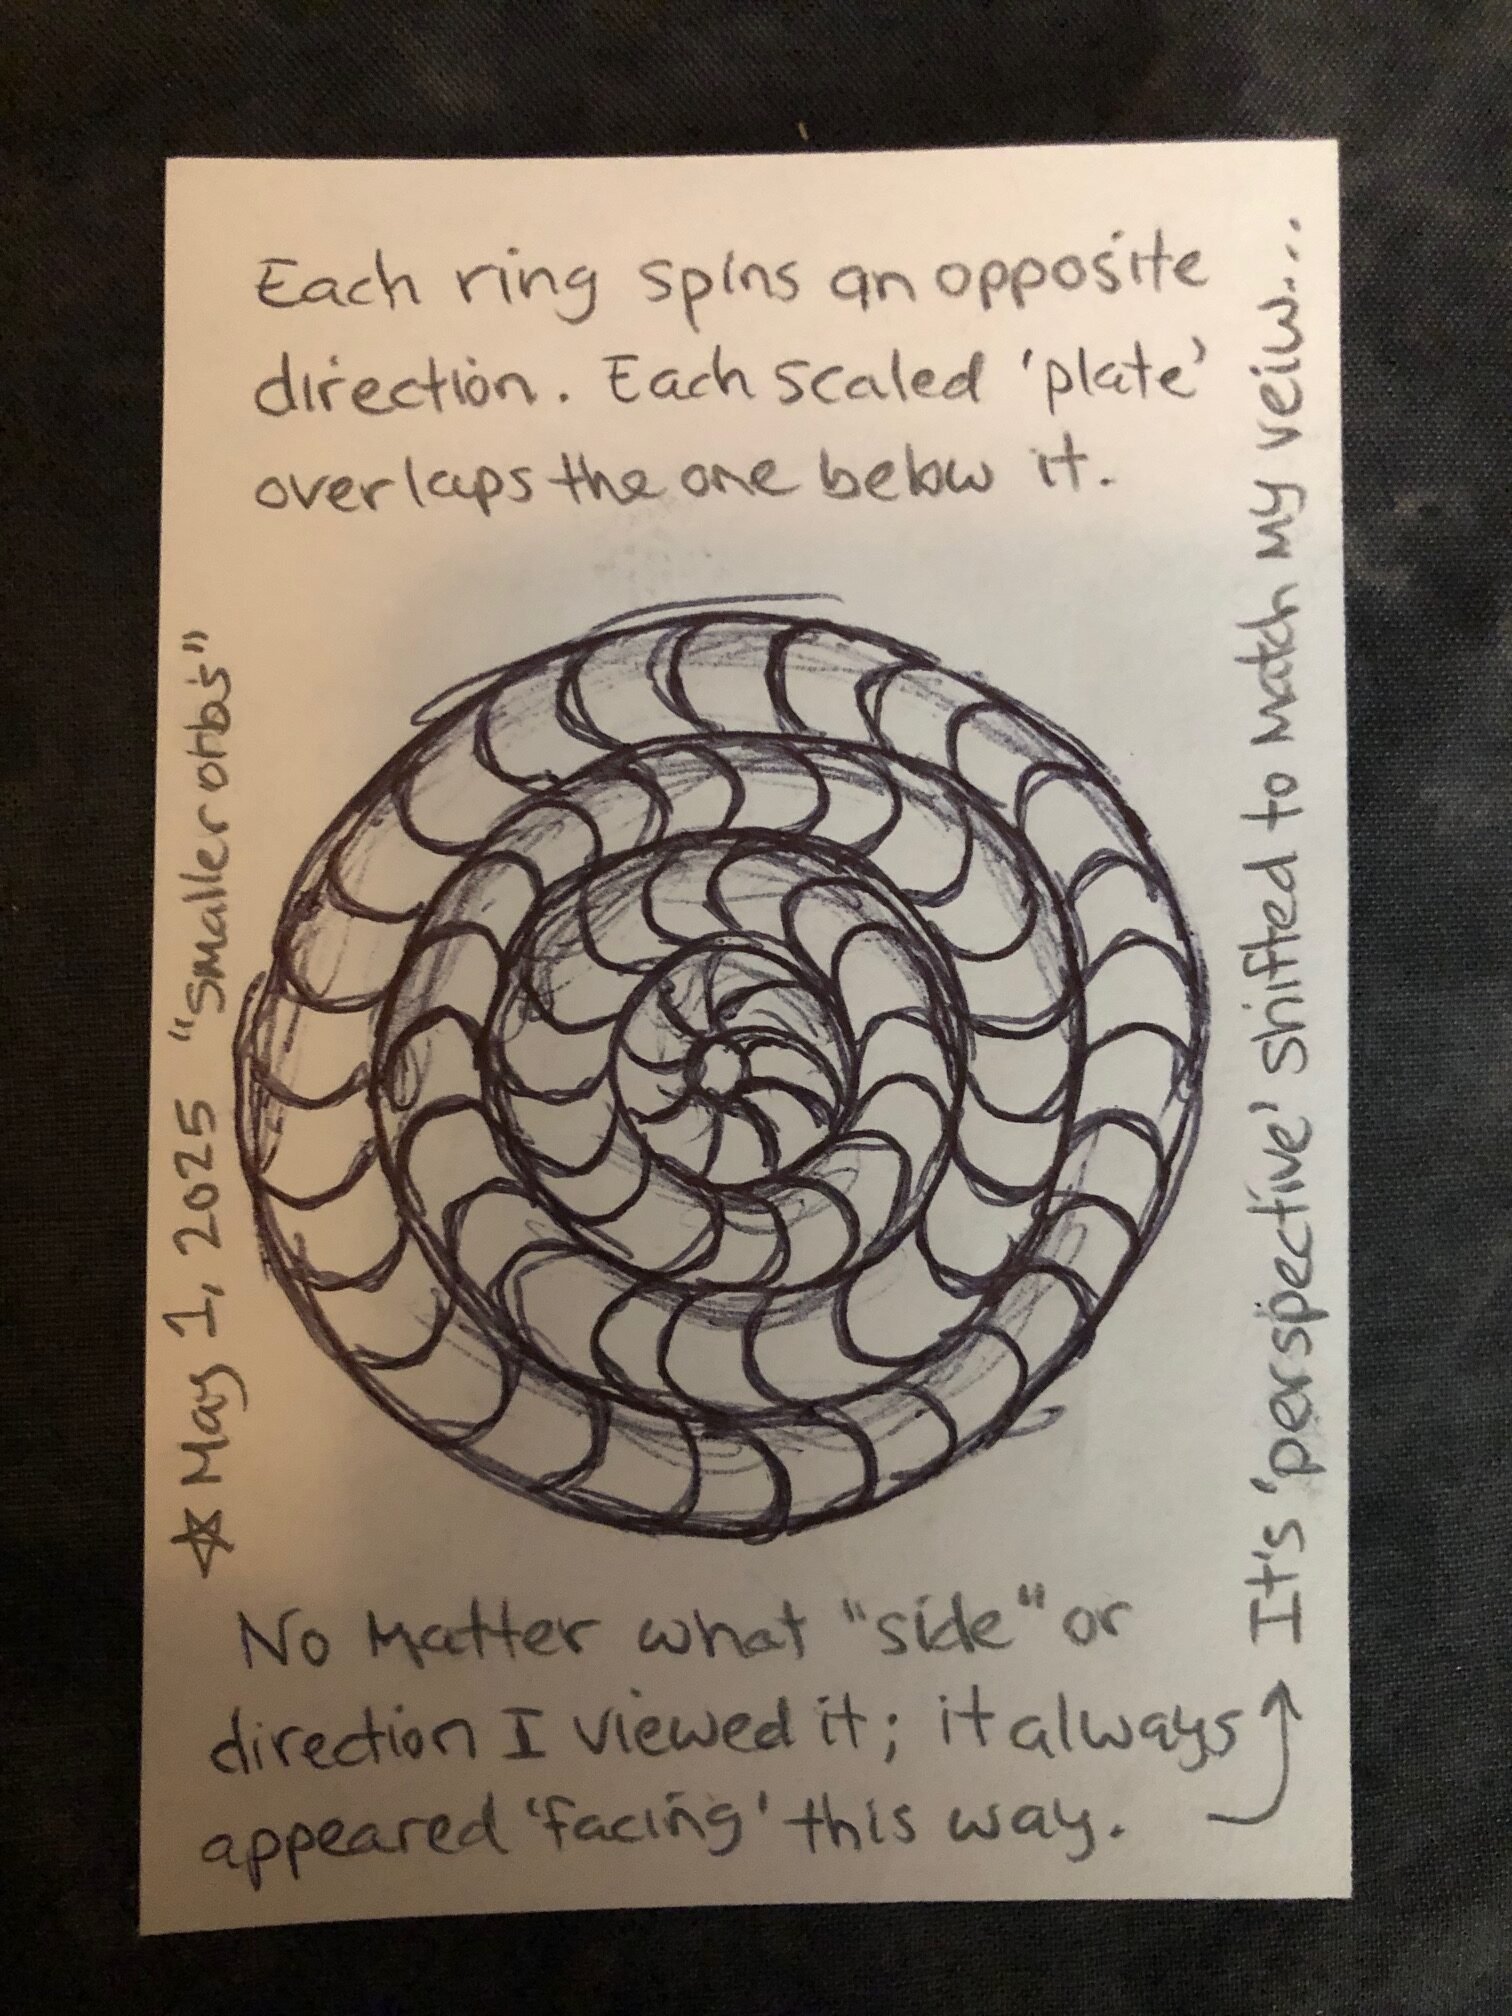 Each ring spins an opposite
direction. Each scaled 'plate'
overlaps the one below it.
☆ May 1, 2025 "smaller orbs"
No matter what "side" or
direction I viewed it; it always
appeared 'facing' this way.
It's 'perspective' shifted to match my veiw...